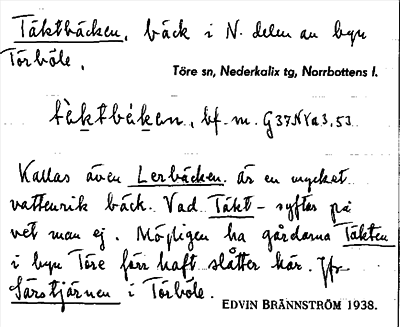 Täktbäcken, bäck i N. delen av byn
Törböle.
Töre sn, Nederkalix tg, Norrbottens l.
tèktbéken, bf. m. G37NYa3,53
Kallas även Lerbäcken. är en mycket
vattenrik bäck. Vad Täkt- syftar på
vet man ej. Möjligen ha gårdarna Täkten
i byn Töre förr haft slåtter här. Jfr
Särstjärnen i Törböle.
EDVIN BRÄNNSTRÖM 1938.